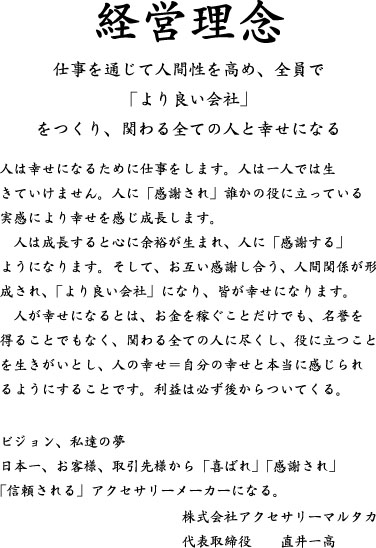 経営理念
仕事を通じて人間性を高め、全員で
「より良い会社」
をつくり、関わる全ての人と幸せになる
人は幸せになるために仕事をします。人は一人では生
きていけません。人に「感謝され」誰かの役に立っている
実感により幸せを感じ成長します。
人は成長すると心に余裕が生まれ、人に「感謝する」
ようになります。そして、お互い感謝し合う、人間関係が形
成され、「より良い会社」になり、皆が幸せになります。
人が幸せになるとは、お金を稼ぐことだけでも、名誉を
得ることでもなく、関わる全ての人に尽くし、役に立つこと
を生きがいとし、人の幸せ＝自分の幸せと本当に感じられ
るようにすることです。利益は必ず後からついてくる。
ビジョン、私達の夢
日本一、お客様、取引先様から「喜ばれ」「感謝され」
「信頼される」アクセサリーメーカーになる。
株式会社アクセサリーマルタカ
代表取締役　直井一高